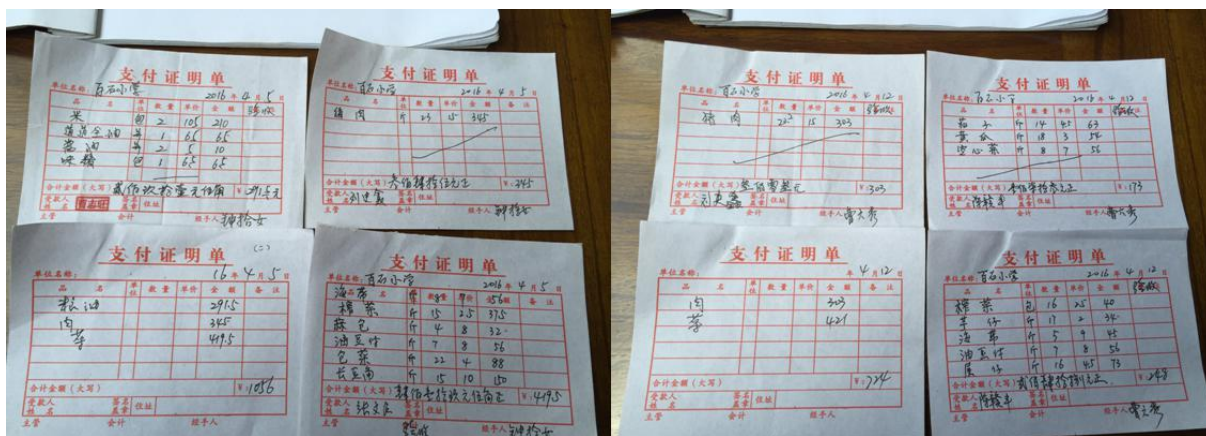 支付证明单
单位名称：百石小学 2016年4月5日
品名 单位 数量 单价 金额 备注
米 包 2 105 210
1 65 65
2 5 10
味精 包 1 6.5 6.5
合计金额（大写）贰佰玖拾壹元伍角 ¥:291.5元
受款人姓名 签名盖章 住址
主管 会计 经手人
支付证明单
单位名称：百石小学 2016年4月5日
品名 单位 数量 单价 金额 备注
猪肉 斤 23 15 345
合计金额（大写）叁佰肆拾伍元正 ¥:345
受款人姓名 签名盖章 住址
主管 会计 经手人
支付证明单
(二)
单位名称： 16年4月5日
品名 单位 数量 单价 金额 备注
粮油 291.5
肉 345
菜 419.5
合计金额（大写） ¥:1056
受款人姓名 签名盖章 住址
主管 会计 经手人
支付证明单
单位名称：百石小学 2016年4月5日
海带
榨菜 斤 15 2.5 37.5
斤 4 8 32
油豆付 斤 7 8 56
包菜 斤 22 4 88
长豆角 斤 15 10 150
合计金额（大写）肆佰壹拾玖元伍角正 ¥:419.5
受款人姓名 签名盖章 住址
主管 会计 经手人
支付证明单
单位名称：百石小学 2016年4月12日
品名 单位 数量 单价 金额
猪肉 15 303
合计金额（大写）叁佰零叁元 ¥:303
受款人姓名 签名盖章 住址
主管 会计 经手人
支付证明单
单位名称：百石小学 2016年4月12日
品名 单位 数量 单价 金额
茄子 斤 14 4.5 63
黄瓜 斤 18 3 54
空心菜 斤 8 7 56
合计金额（大写） ¥:173
受款人姓名 签名盖章 住址
主管 会计 经手人
支付证明单
单位名称： 年4月12日
品名 单位 数量 单价 金额 备注
肉 303
菜 421
合计金额（大写） ¥:724
受款人姓名 签名盖章 住址
主管 会计 经手人
支付证明单
单位名称：百石小学 2016年4月12日
品名 单位 数量 单价 金额
榨菜 包 16 2.5 40
斤 17 2 34
海带 斤 5 9 45
油豆付 斤 7 8 56
斤 16 4.5 73
合计金额（大写）贰佰肆拾捌元正 ¥:248
受款人姓名 签名盖章 住址
主管 会计 经手人